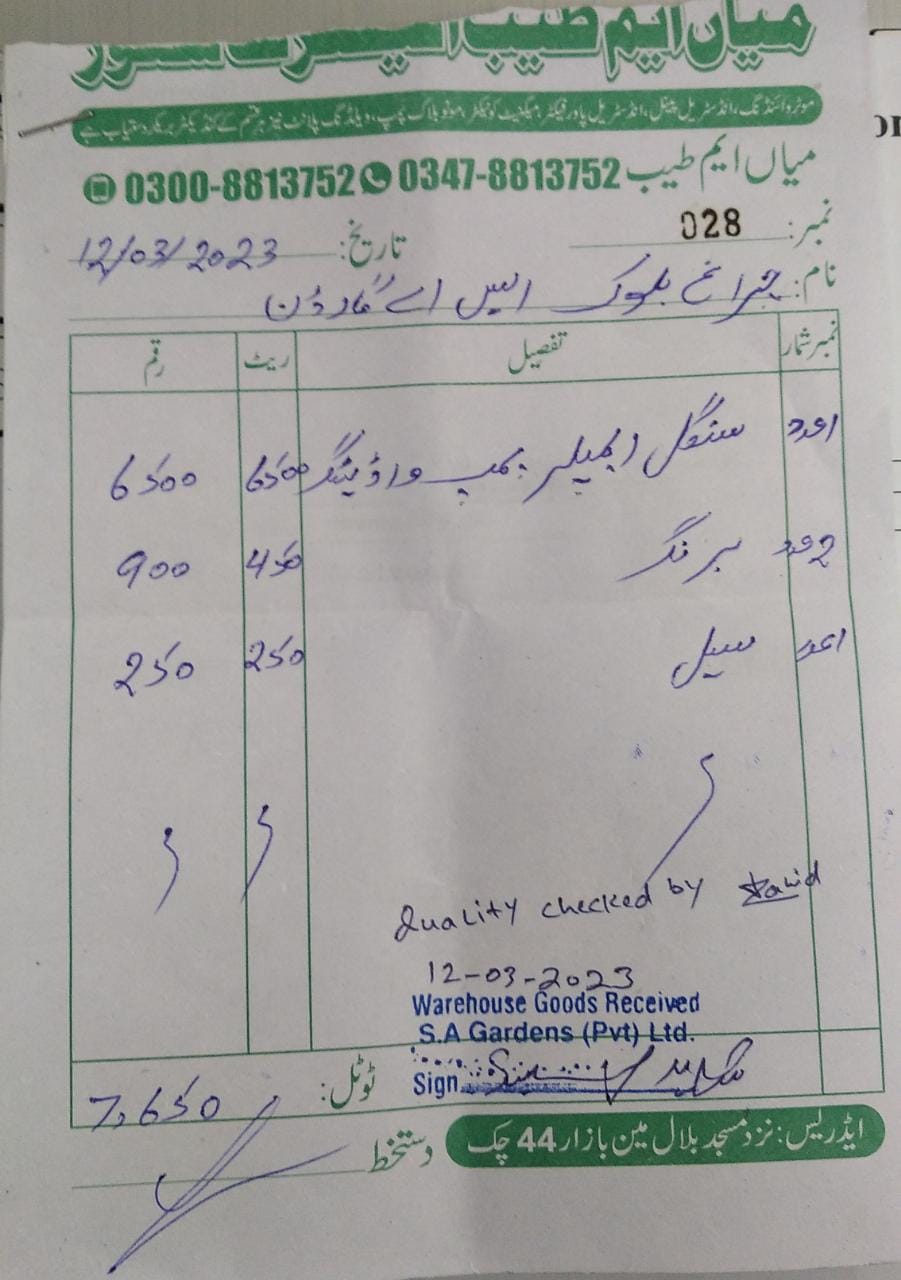 میاں ایم طیب الیکٹرک سٹور
موٹر وائنڈنگ، انڈسٹریل پینل، انڈسٹریل پاور فیکٹر، میگنیٹ کونیکٹر، مونو بلاک پمپ، ویلڈنگ پلانٹ نیز ہر قسم کے کنڈیکٹر بریکر دستیاب ہے
میاں ایم طیب 0347-8813752 0300-8813752
نمبر: 028 تاریخ: 12/03/2023
نام: چراغ بلوک ایس اے گارڈن
نمبر شمار تفصیل ریٹ رقم
1عدد سنگل ایمپلر پمپ وائڈینگ 6500 6500
2عدد بیرنگ 450 900
1عدد سیل 250 250
Quality checked by
12-03-2023
Warehouse Goods Received
S.A Gardens (Pvt) Ltd.
Sign
ٹوٹل: 7,650
ایڈریس: نزد مسجد بلال مین بازار 44 چک دستخط